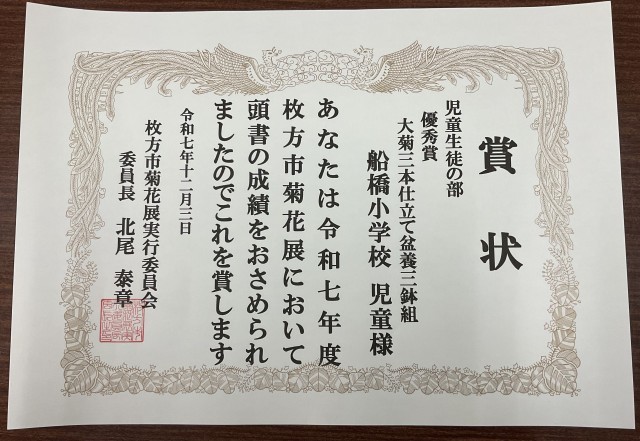 賞状
児童生徒の部
優秀賞
大菊三本仕立て盆養三鉢組
船橋小学校 児童様
あなたは令和七年度
枚方市菊花展において
頭書の成績をおさめられ
ましたのでこれを賞します
令和七年十二月三日
枚方市菊花展実行委員会
委員長 北尾 泰章